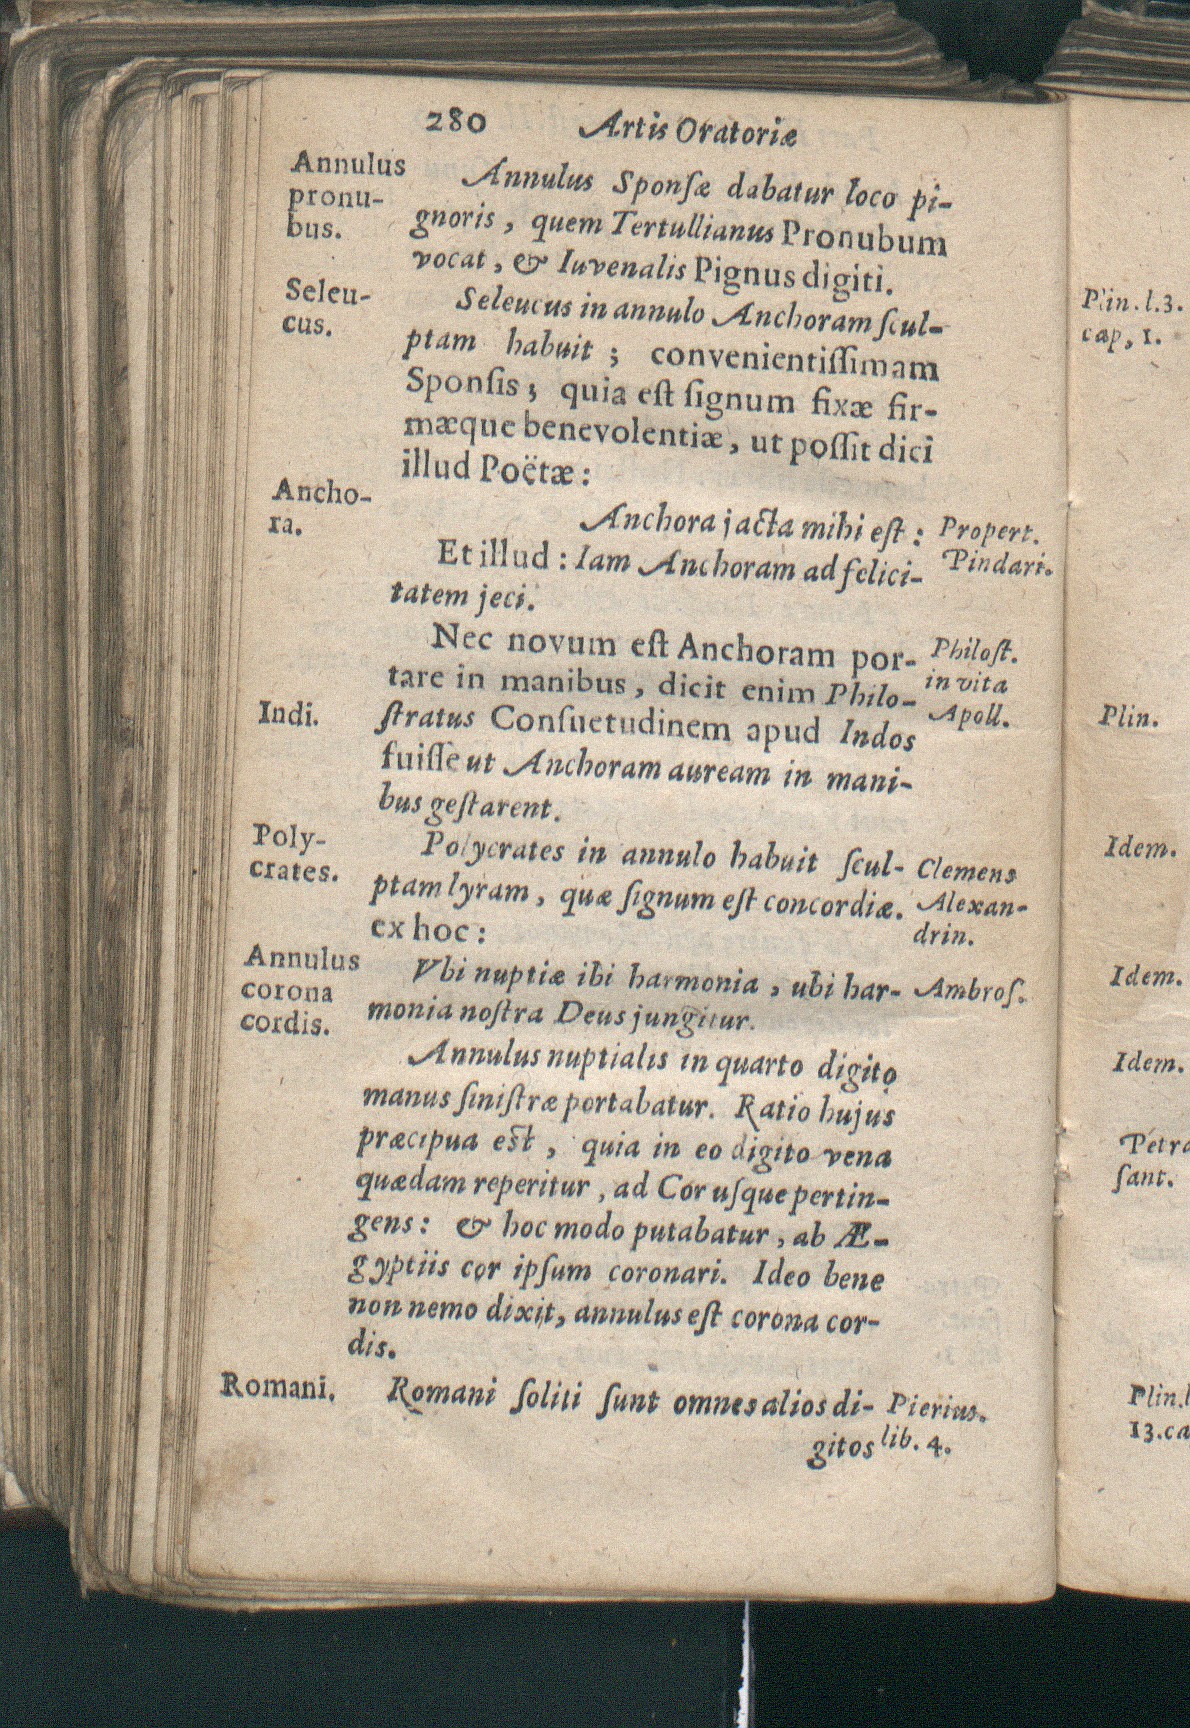 280 Artis Oratoriæ
Annulus
pronu-
bus.
Annulus Sponſæ dabatur loco pi-
gnoris, quem Tertullianus Pronubum
vocat, & Iuvenalis Pignus digiti.
Seleu-
cus.
Seleucus in annulo Anchoram ſcul-
ptam habuit ; convenientiſſimam
Sponſis; quia eſt ſignum fixæ fir-
mæque benevolentiæ, ut poſſit dici
illud Poëtæ:
Ancho-
ra.
Anchora jacta mihi eſt : Propert.
Et illud : Iam Anchoram ad felici- Pindari.
tatem jeci.
Nec novum eſt Anchoram por- Philoſt.
tare in manibus, dicit enim Philo- in vita
Indi. ſtratus Conſuetudinem apud Indos Apoll.
fuiſſe ut Anchoram auream in mani-
bus geſtarent.
Poly-
crates.
Polycrates in annulo habuit ſcul- Clemens
ptam lyram, quæ ſignum eſt concordiæ. Alexan-
ex hoc: drin.
Annulus
corona
cordis.
Vbi nuptiæ ibi harmonia, ubi har- Ambroſ.
monia noſtra Deus jungitur.
Annulus nuptialis in quarto digito
manus ſiniſtræ portabatur. Ratio hujus
præcipua est, quia in eo digito vena
quædam reperitur, ad Cor uſque pertin-
gens: & hoc modo putabatur, ab Æ-
gyptiis cor ipſum coronari. Ideo bene
non nemo dixit, annulus eſt corona cor-
dis.
Romani. Romani ſoliti ſunt omnes alios di- Pierius.
gitos lib. 4.
Plin. l. 3.
cap, 1.
Plin.
Idem.
Idem.
Idem.
Petra
ſant.
Plin.l
13.ca